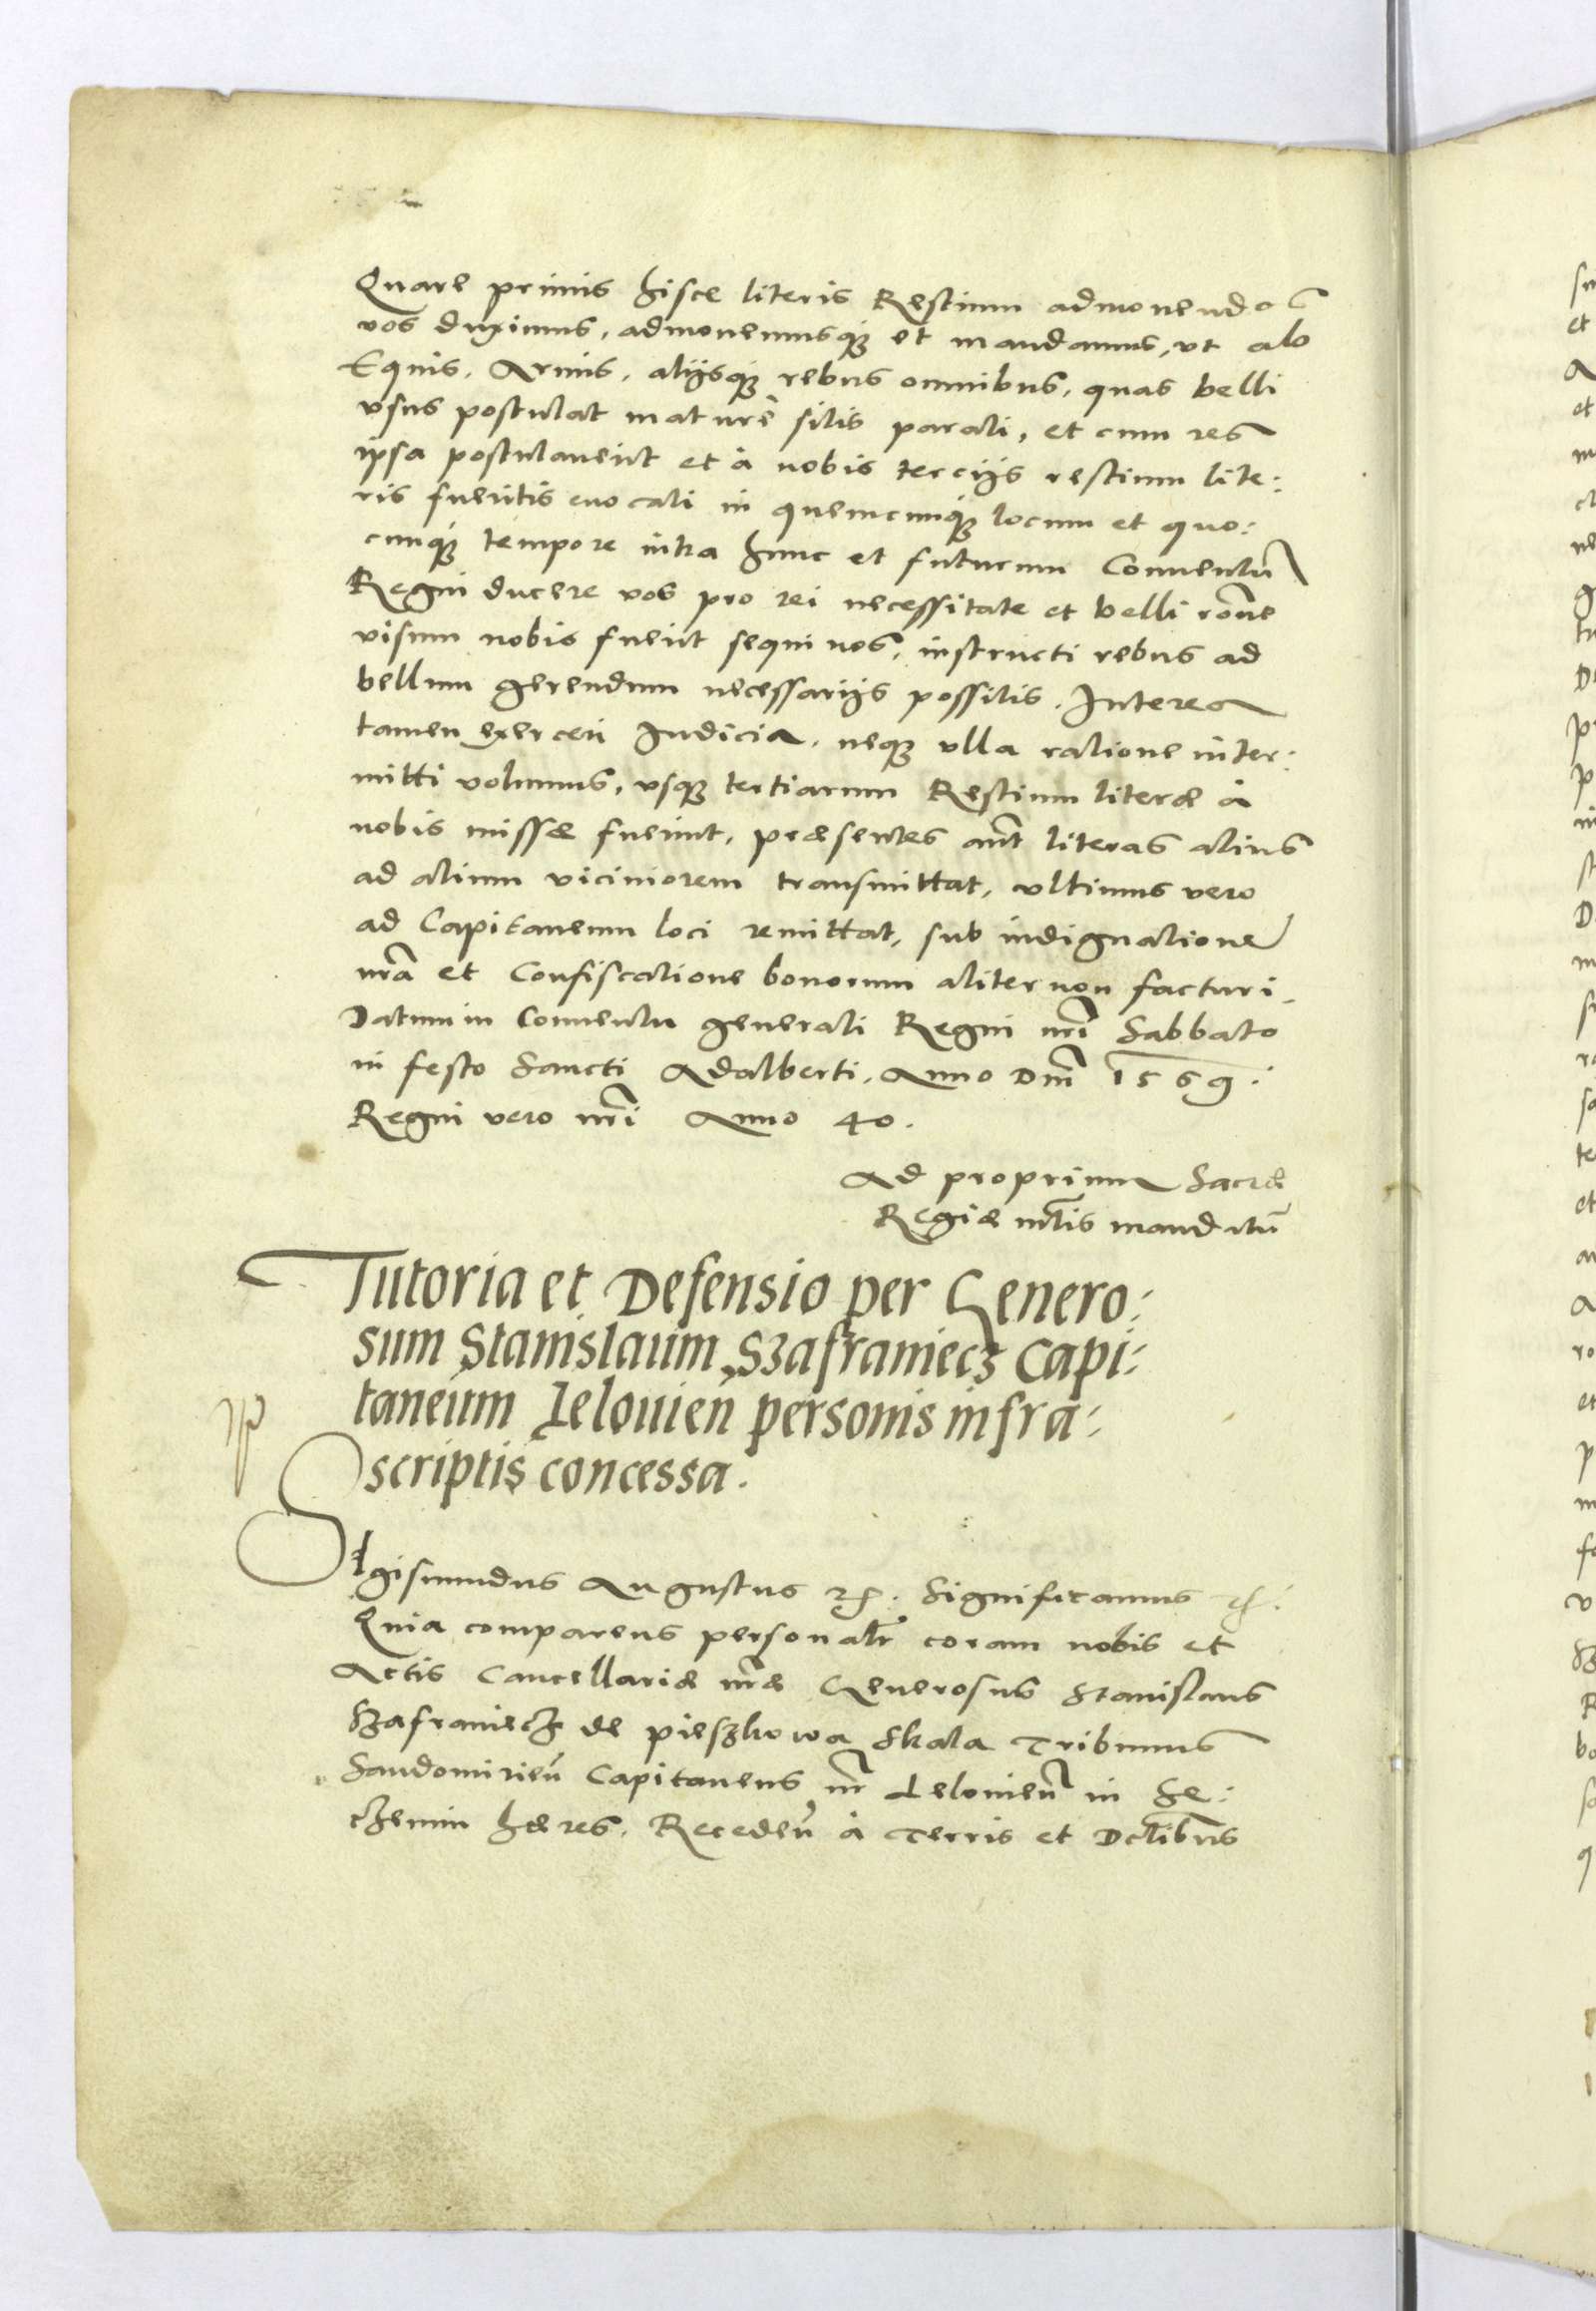 Quare primis hisce literis Restium admonendos
vos duximus, admonemusq; et mandamus, vt ab
Equis, Armis, alijsq; rebus omnibus, quas belli
vsus postulat maturè sitis parati, et cum res
ipsa postulauerit et à nobis tercijs restium lite:
ris fueritis euocati in quemcunq; locum et quo:
cunq; tempore intra hunc et futurum Conuentũ
Regni ducere vos pro rei necessitate et belli rõne
visum nobis fuerit sequi nos, instructi rebus ad
bellum gerendum necessarijs possitis. Interea
tamen exerceri Iudicia, neq; vlla ratione inter:
mitti volumus, vsq; tertiarum Restium literæ à
nobis missæ fuerint, præsentes aũt literas alius
ad alium viciniorem transmittat, vltimus vero
ad Capitaneum loci remittat, sub indignatione
nrã et Confiscatione bonorum aliter non facturi.
Datum in Conuentu generali Regni nrĩ Sabbato
in festo Sancti Adalberti, Anno Dnĩ 1569.
Regni vero nrĩ Anno 40.
Ad proprium Sacræ
Regiæ mt̃is mandatũ
Tutoria et Defensio per Genero:
sum Stanislaum Szafraniecz Capi:
taneum Lelouieñ personis infra:
scriptis concessa.
Sigismundus Augustus etc. Significamus etc.
Quia comparens personalr̃ coram nobis et
Actis Cancellariæ nræ Generosus Stanislaus
Szafraniecz de Pieszkowa Skala Tribunus
Sandomirieñ Capitaneus nr̃ Lelouieñ in Se:
czemin hæres, Recedeñ à Terris et Dct̃ibus